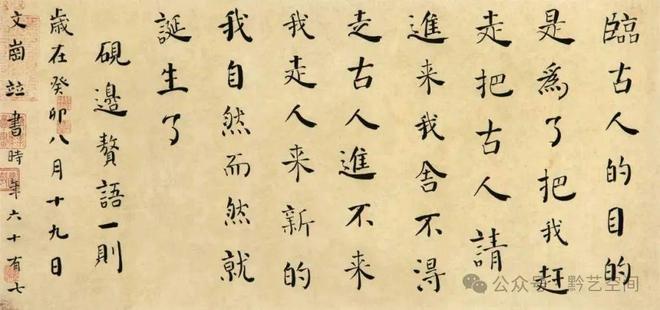 臨古人的目的
是為了把我赶
走把古人請
進来我舍不得
走古人進不来
我走人来新的
我自然而然就
誕生了
硯邊贅語一則
歲在癸卯八月十九日
文崗竝書時年六十有七
公众号·黔艺空间